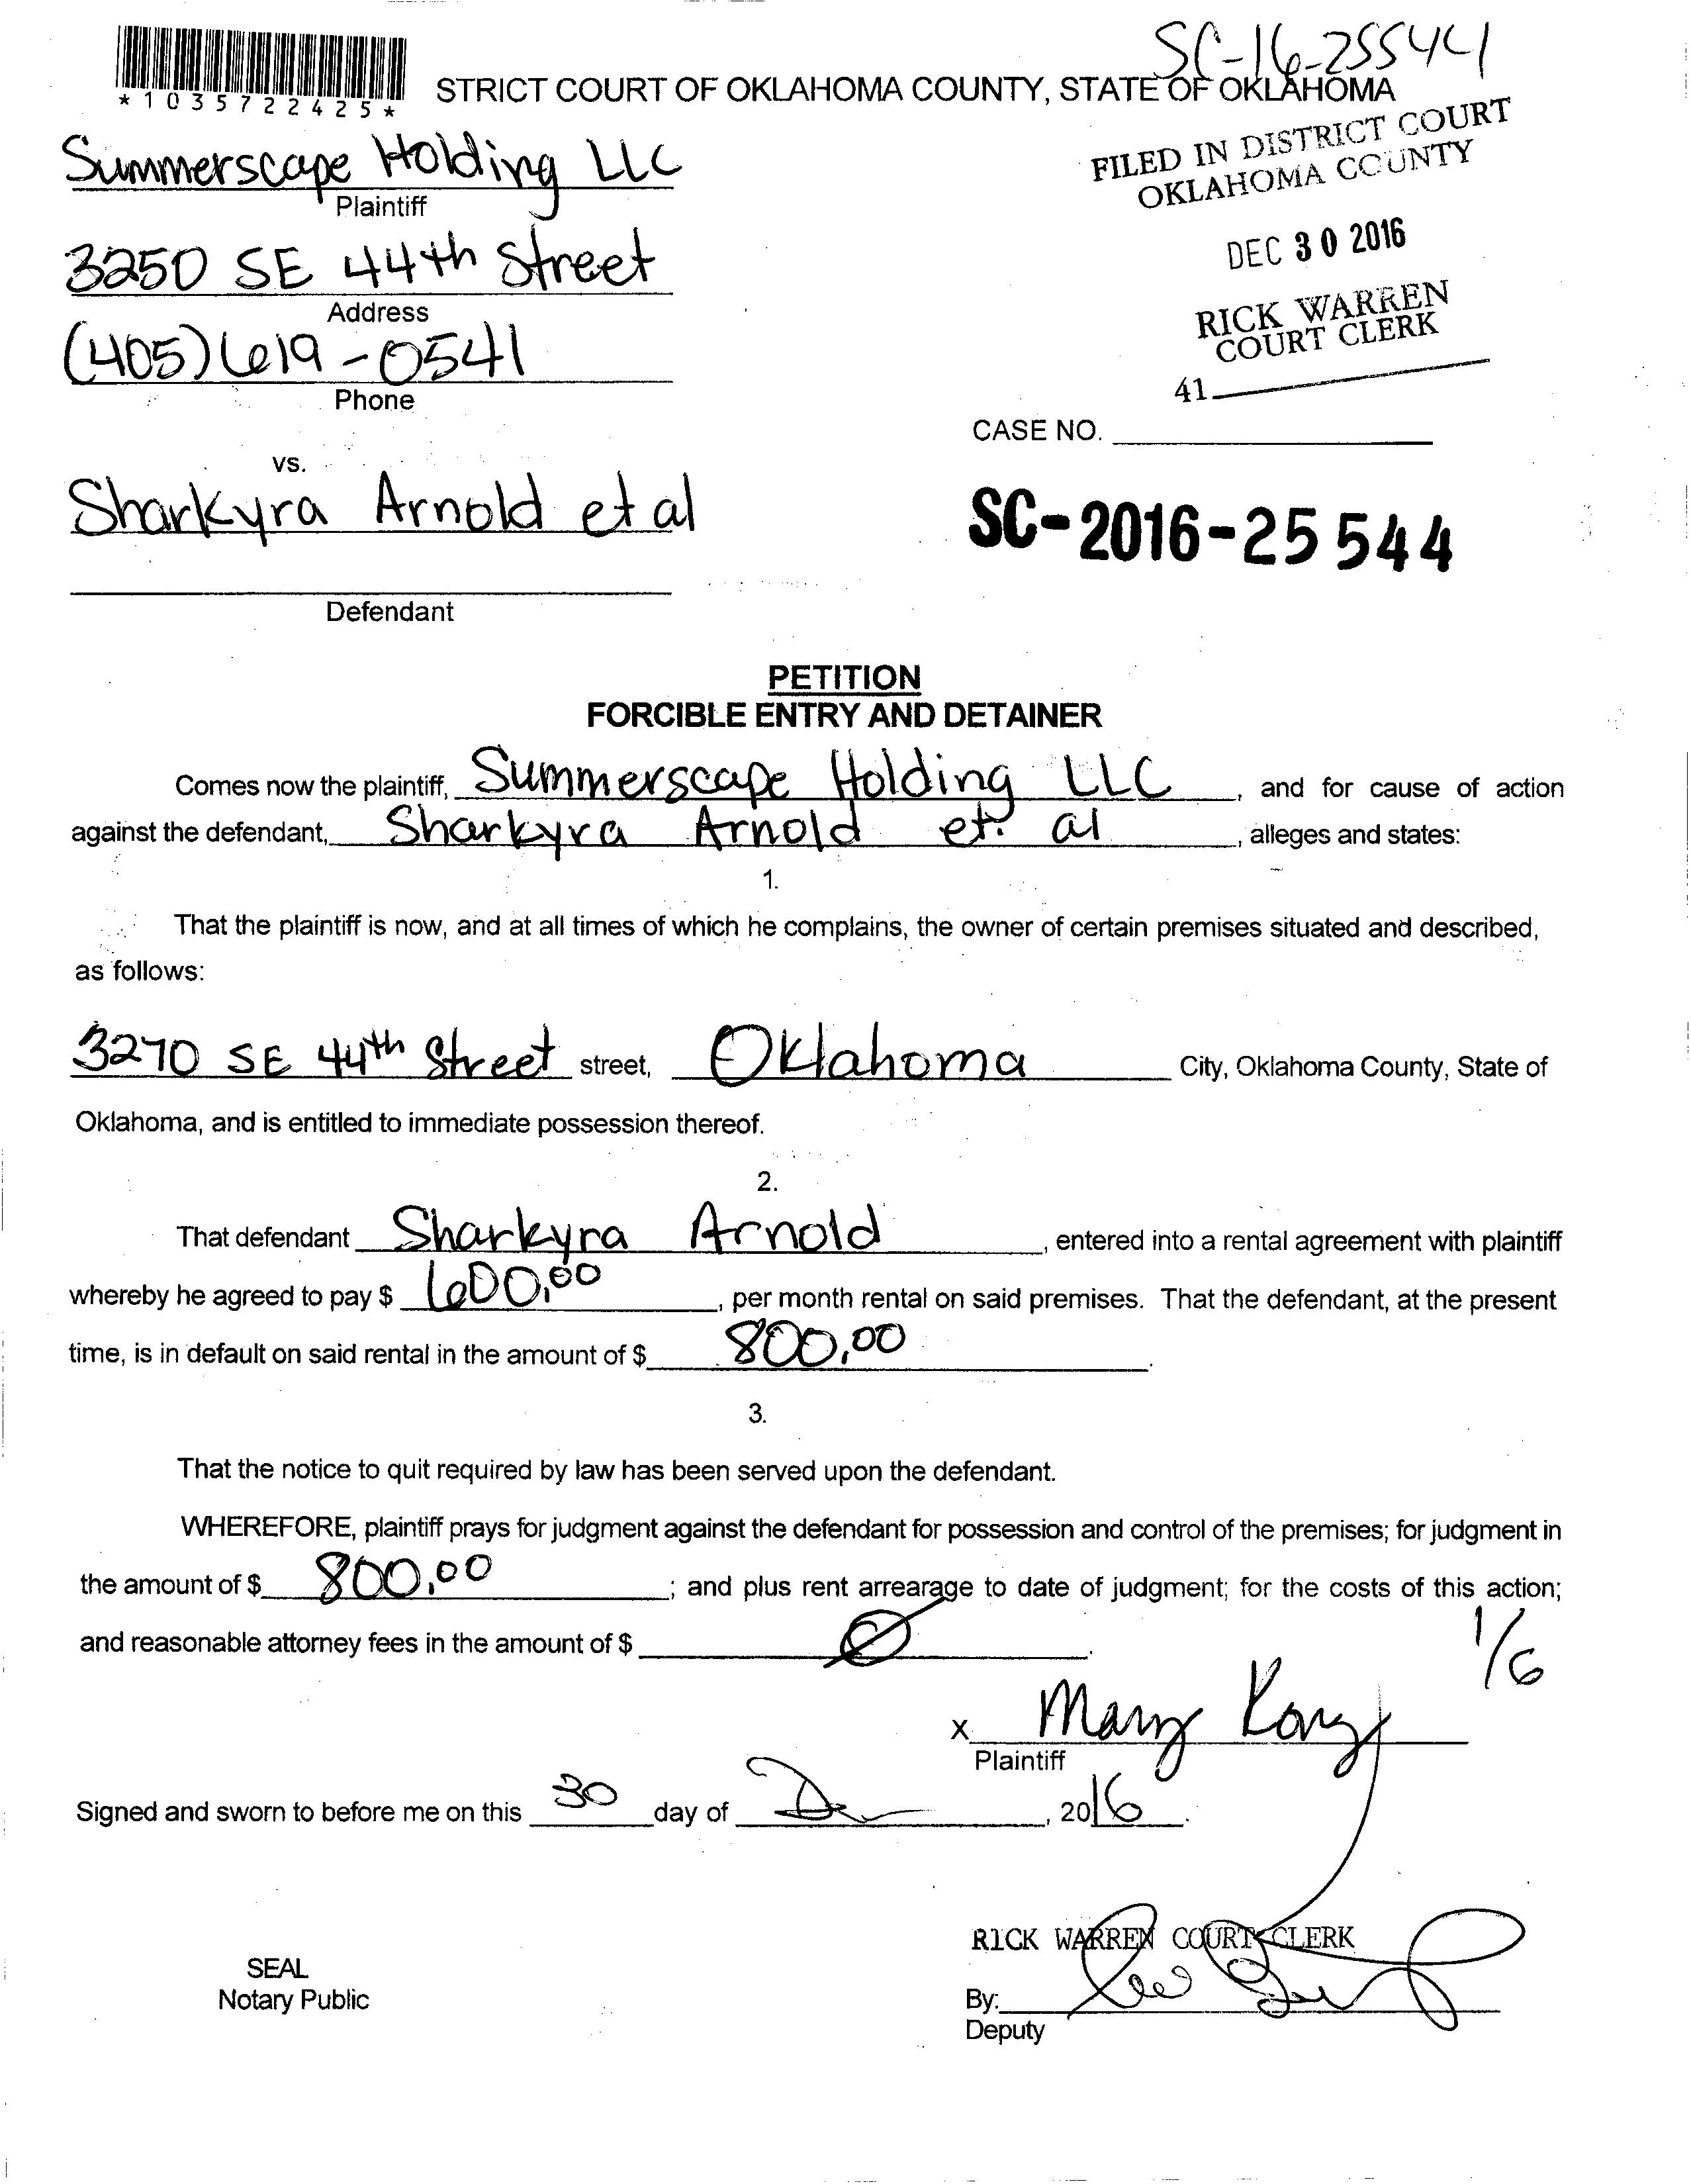 SC-16-25544
*1035722425*
STRICT COURT OF OKLAHOMA COUNTY, STATE OF OKLAHOMA
FILED IN DISTRICT COURT
OKLAHOMA COUNTY
DEC 30 2016
RICK WARREN
COURT CLERK
41
Summerscape Holding LLC
Plaintiff
3250 SE 44th Street
Address
(405)619-0541
Phone
CASE NO.
vs.
Sharkyra Arnold et al
SC-2016-25544
Defendant
PETITION
FORCIBLE ENTRY AND DETAINER
Comes now the plaintiff, Summerscape Holding LLC, and for cause of action
against the defendant, Sharkyra Arnold et. al, alleges and states:
1.
That the plaintiff is now, and at all times of which he complains, the owner of certain premises situated and described,
as follows:
3270 SE 44th Street street, Oklahoma City, Oklahoma County, State of
Oklahoma, and is entitled to immediate possession thereof.
2.
That defendant Sharkyra Arnold, entered into a rental agreement with plaintiff
whereby he agreed to pay $ 600.00, per month rental on said premises. That the defendant, at the present
time, is in default on said rental in the amount of $ 800.00.
3.
That the notice to quit required by law has been served upon the defendant.
WHEREFORE, plaintiff prays for judgment against the defendant for possession and control of the premises; for judgment in
the amount of $ 800.00; and plus rent arrearage to date of judgment; for the costs of this action;
and reasonable attorney fees in the amount of $ Ø.
1/6
X Mary Kong
Plaintiff
Signed and sworn to before me on this 30 day of De, 2016.
RICK WARREN COURT CLERK
SEAL
Notary Public
By:
Deputy